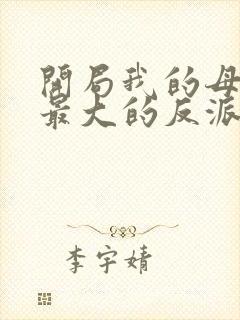 開局我的母
最大的反派
李宇婧